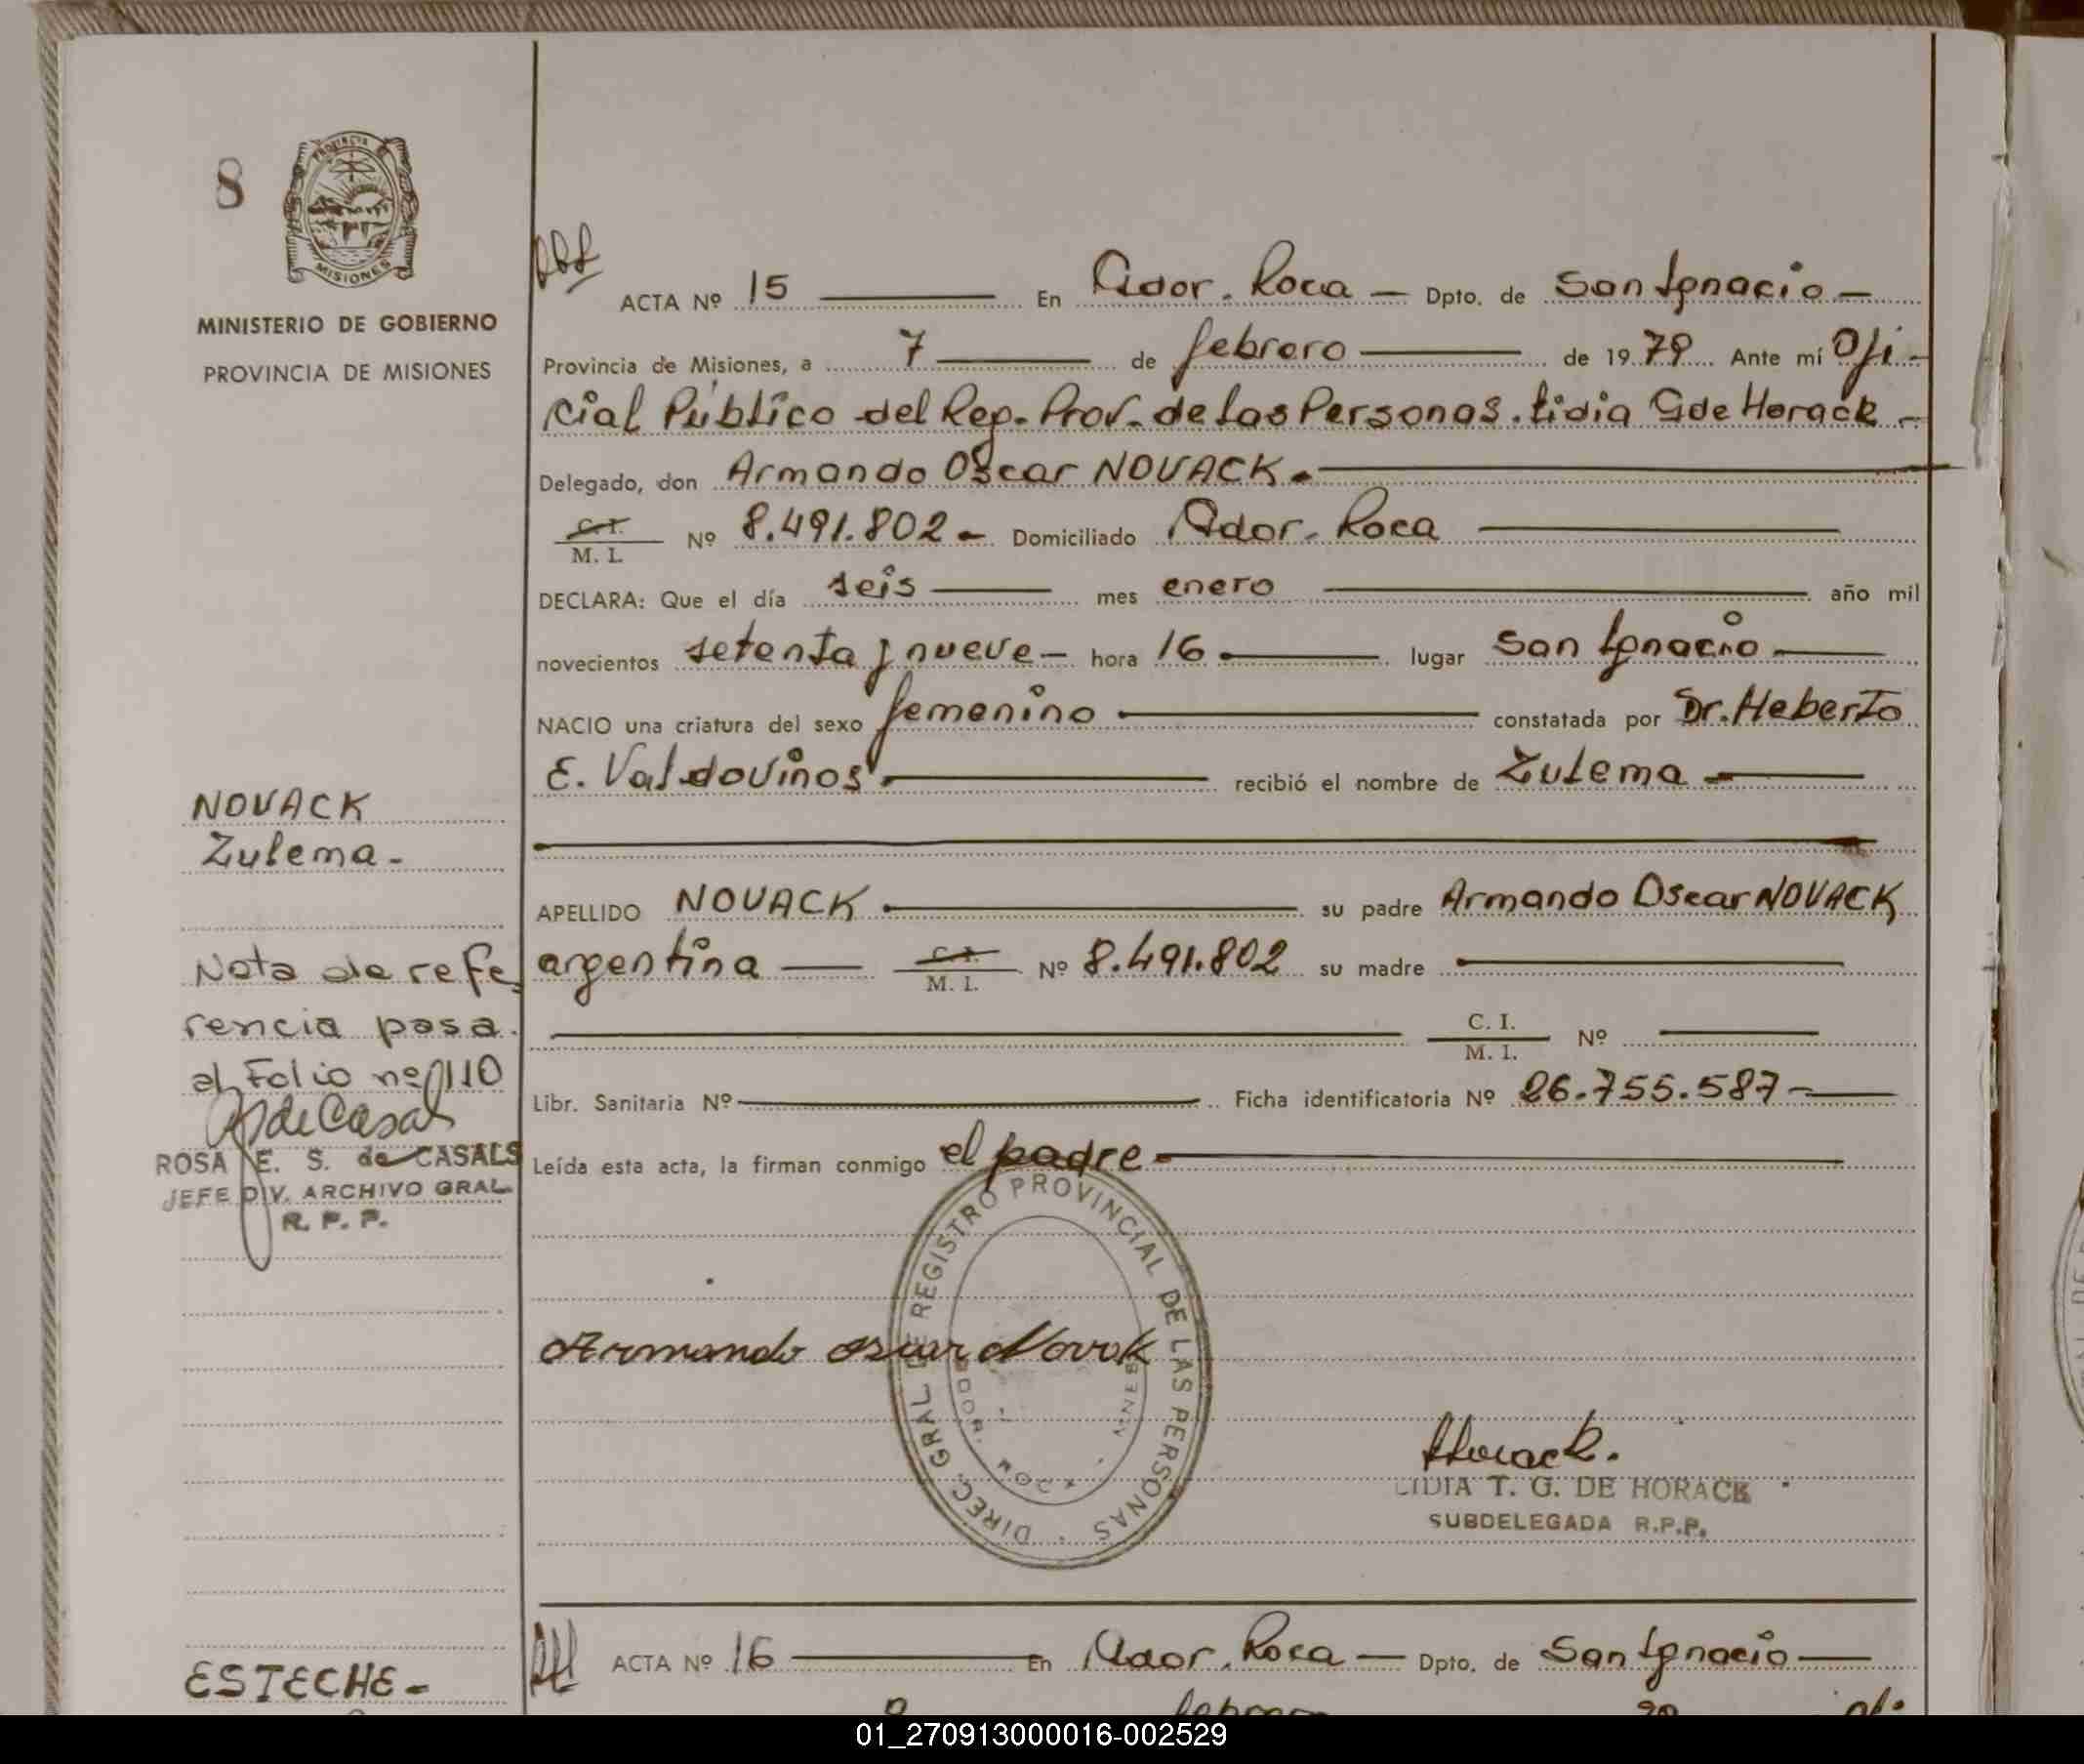 8
PROVINCIA
MISIONES
MINISTERIO DE GOBIERNO
PROVINCIA DE MISIONES
ACTA Nº 15 En Gdor. Roca - Dpto. de San Ignacio -
Provincia de Misiones, a 7 de febrero de 1979 Ante mí Ofi-
cial Público del Reg. Prov. de las Personas. Lidia G de Horack -
Delegado, don Armando Oscar NOVACK.
C. I.
M. I. Nº 8.491.802 - Domiciliado Gdor. Roca
DECLARA: Que el día seis mes enero año mil
novecientos setenta y nueve - hora 16 lugar San Ignacio
NACIO una criatura del sexo femenino constatada por Dr. Heberto
E. Valdovinos recibió el nombre de Zulema
NOVACK
Zulema -
APELLIDO NOVACK su padre Armando Oscar NOVACK
argentina C. I.
M. I. Nº 8.491.802 su madre
C. I.
M. I. Nº
Libr. Sanitaria Nº Ficha identificatoria Nº 26.755.587 -
Leída esta acta, la firman conmigo el padre
Nota de refe-
rencia pasa
al Folio nº 110
RS de Casals
ROSA E. S. de CASALS
JEFE DIV. ARCHIVO GRAL.
R. P. P.
DIREC. GRAL. DE REGISTRO PROVINCIAL DE LAS PERSONAS
GDOR. ROCA
Armando Oscar Novak
Horack.
LIDIA T. G. DE HORACK
SUBDELEGADA R.P.P.
ESTECHE -
ACTA Nº 16 En Gdor. Roca - Dpto. de San Ignacio
01_270913000016-002529